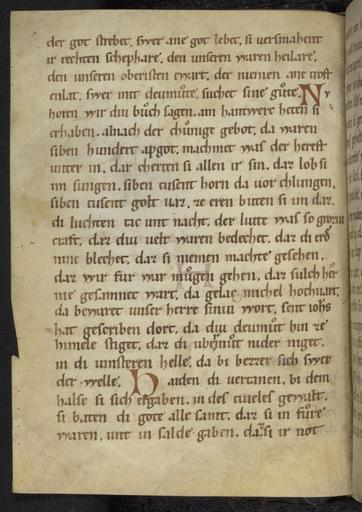 der got strebet. swer ane got lebet. si versmahent
ir rechten schephare. den unseren waren heilare.
den unseren oberisten ewart. der niemen ane trost
enlat. swer mit deumůte. suchet sine gůte. Nv
horen wir diu bůch sagen. ain hantwerc heten si
erhaben. alnach der chůnige gebot. da waren
siben hundert apgot. machmet was der herest
unter in. dar cherten si allen ir sin. dar lob si
im sungen. siben tusent horn da uor chlungen.
siben tusent golt uaz. ze eren biten si im daz.
di luchten tac unt nacht. der lutte was so grozin
craft. daz diu velt waren bedechet. daz di erd
nine blechet. daz si niemen machte gesehen.
daz wir fur war mugen gehen. daz sulch her
nie gesamnet wart. da gelac michel hochuart.
da bewaret unser herre siniu wort. sent iohs
hat gescriben dort. da diu deumůt hin ze
himele stiget. daz di ubermůt nider niget.
in di uinsteren helle. da bi bezzer sich swer
der welle. Haiden di vertanen. bi dem
halse si sich ergaben. in des tiueles gewalt.
si baten di gote alle samt. daz si in fůre
waren. unt in salde gaben. daz si ir not